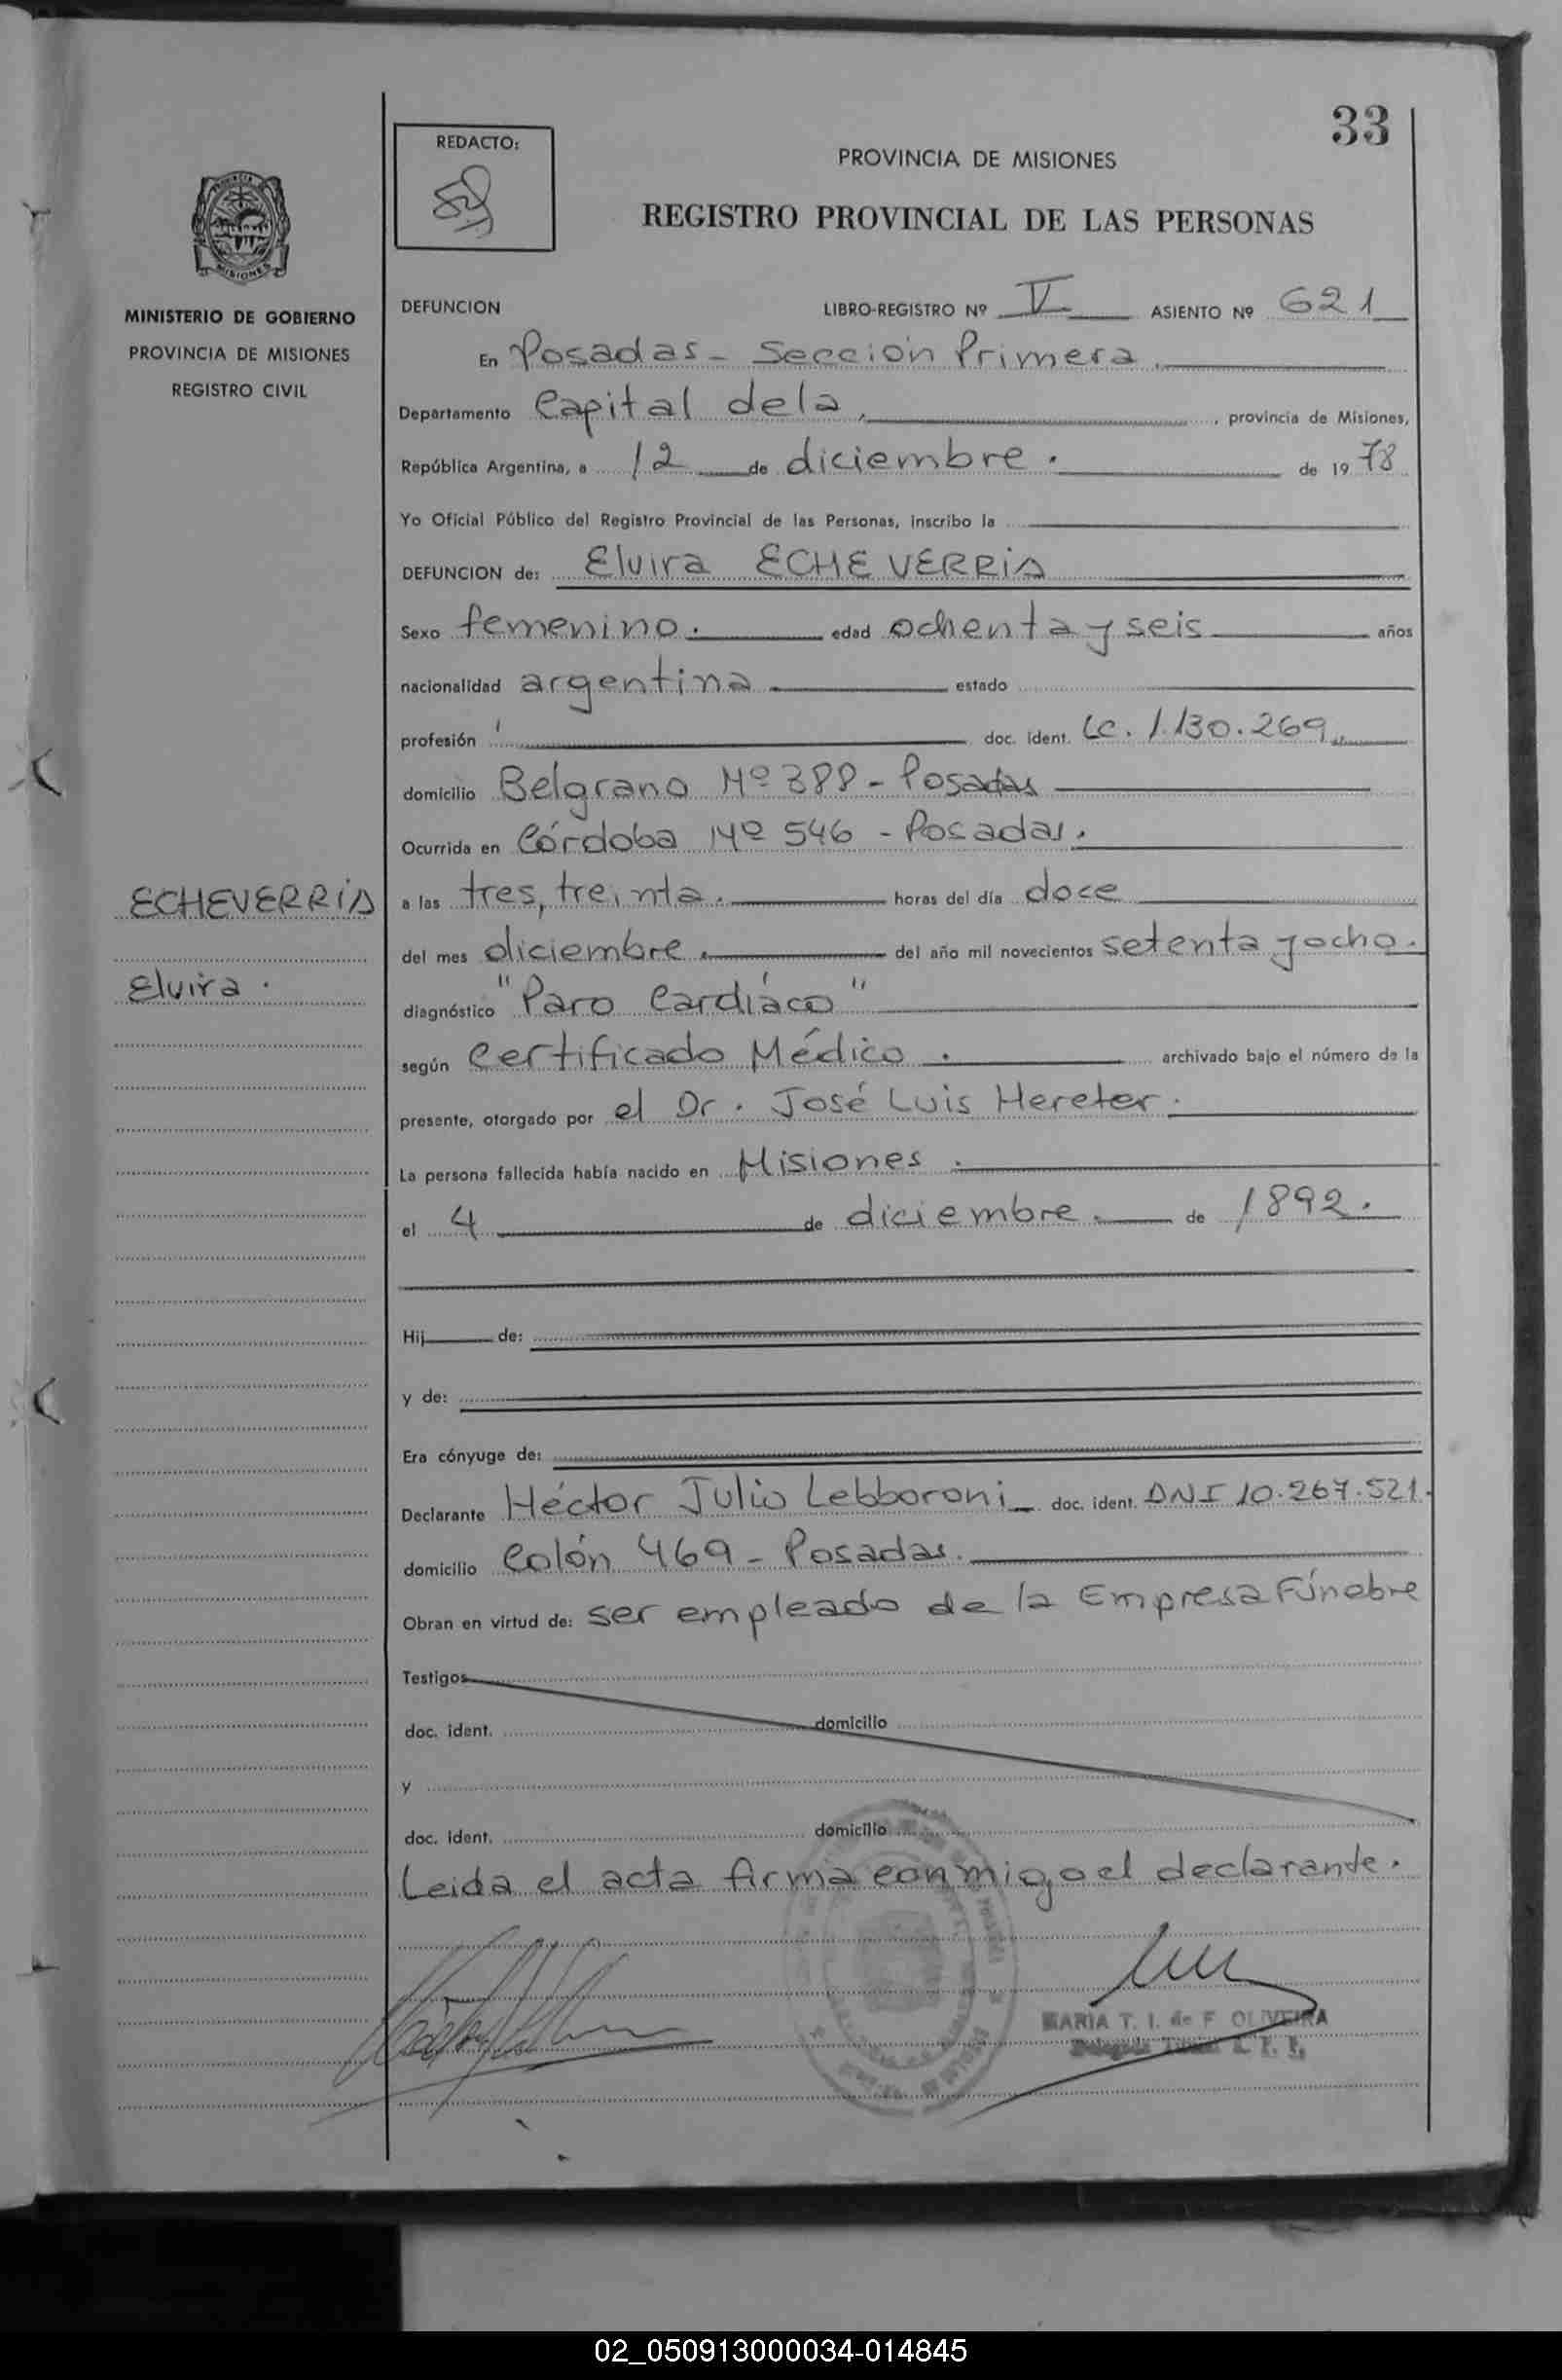 33
REDACTO:
PROVINCIA DE MISIONES
REGISTRO PROVINCIAL DE LAS PERSONAS
MISIONES
MINISTERIO DE GOBIERNO
PROVINCIA DE MISIONES
REGISTRO CIVIL
DEFUNCION LIBRO-REGISTRO Nº V ASIENTO Nº 621
En Posadas - Sección Primera.
Departamento Capital dela, provincia de Misiones,
República Argentina, a 12 de diciembre. de 1978
Yo Oficial Público del Registro Provincial de las Personas, inscribo la
DEFUNCION de: Elvira ECHEVERRIA
Sexo femenino. edad ochenta y seis años
nacionalidad argentina estado
profesión doc. ident. LC. 1.130.269.
domicilio Belgrano Nº 388 - Posadas
Ocurrida en Córdoba Nº 546 - Posadas.
ECHEVERRIA
Elvira.
a las tres, treinta. horas del día doce
del mes diciembre. del año mil novecientos setenta y ocho.
diagnóstico "Paro Cardíaco"
según Certificado Médico. archivado bajo el número de la
presente, otorgado por el Dr. José Luis Hereter.
La persona fallecida había nacido en Misiones.
el 4 de diciembre. de 1892.
Hij de:
y de:
Era cónyuge de:
Declarante Héctor Julio Lebboroni doc. ident. DNI 10.267.521.
domicilio Colón 469 - Posadas.
Obran en virtud de: ser empleado de la Empresa Fúnebre
Testigos
doc. ident. domicilio
y
doc. ident. domicilio
Leida el acta firma conmigo el declarante.
MARIA T. I. de F OLIVEIRA
02_050913000034-014845